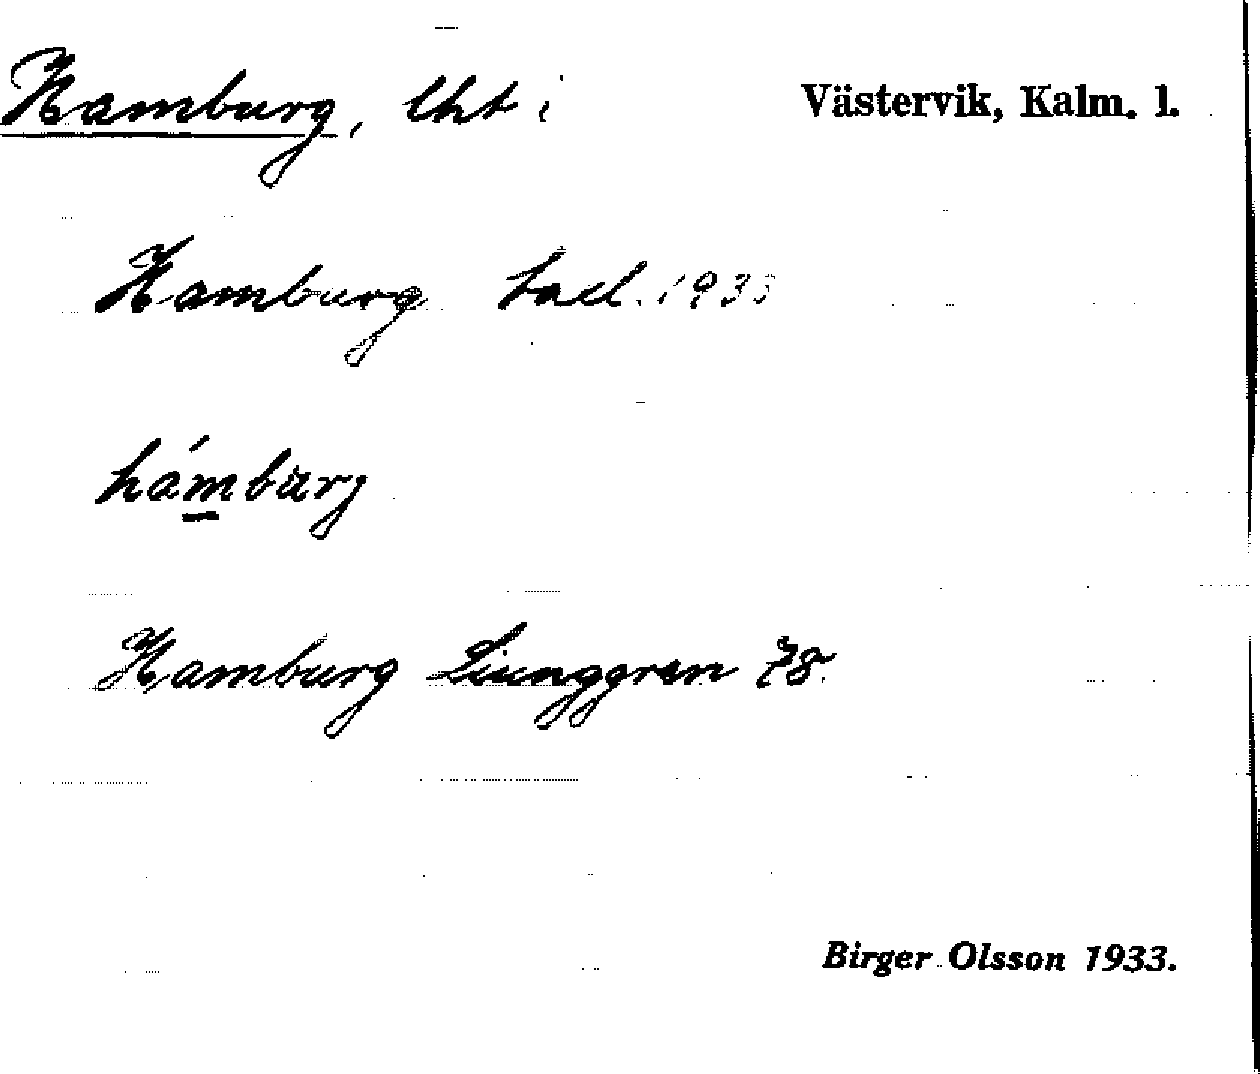 Hamburg, lht i Västervik, Kalm. l.
Hamburg tad. 1933
hámburg
Hamburg Liunggren 78.
Birger Olsson 1933.